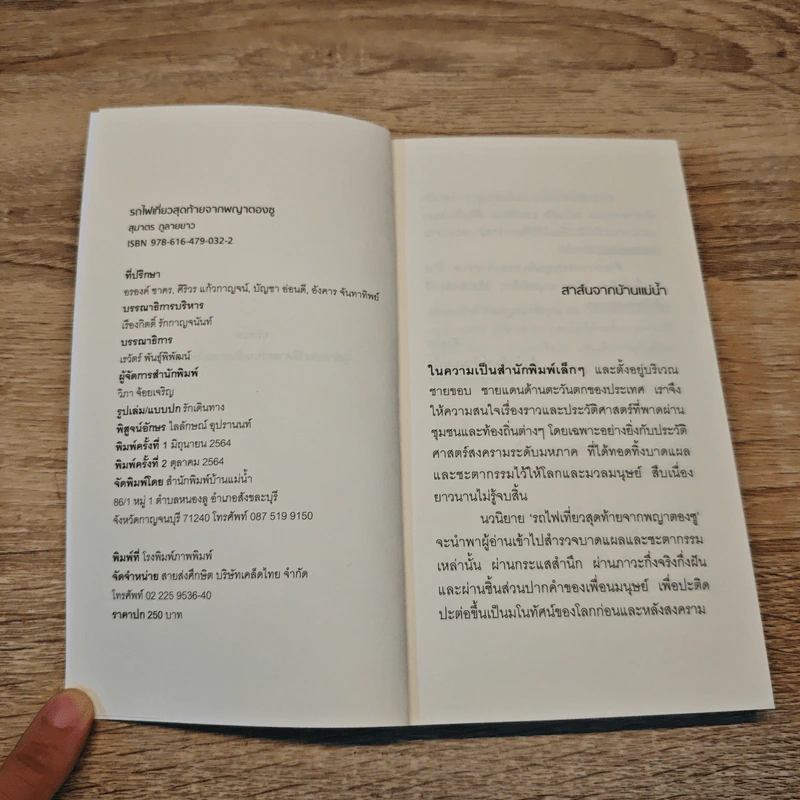 รถไฟเที่ยวสุดท้ายจากพญาตองซู
สุมาตร ภูลายยาว
ISBN 978-616-479-032-2
ที่ปรึกษา
อรองค์ ชาคร, ศิริวร แก้วกาญจน์, บัญชา อ่อนดี, อังคาร จันทาทิพย์
บรรณาธิการบริหาร
เรืองกิตติ์ รักกาญจนันท์
บรรณาธิการ
เรวัตร์ พันธุ์พิพัฒน์
ผู้จัดการสำนักพิมพ์
วิภา จ้อยเจริญ
รูปเล่ม/แบบปก รักเดินทาง
พิสูจน์อักษร ไลลักษณ์ อุปรานนท์
พิมพ์ครั้งที่ 1 มิถุนายน 2564
พิมพ์ครั้งที่ 2 ตุลาคม 2564
จัดพิมพ์โดย สำนักพิมพ์บ้านแม่น้ำ
86/1 หมู่ 1 ตำบลหนองลู อำเภอสังขละบุรี
จังหวัดกาญจนบุรี 71240 โทรศัพท์ 087 519 9150
พิมพ์ที่ โรงพิมพ์ภาพพิมพ์
จัดจำหน่าย สายส่งศึกษิต บริษัทเคล็ดไทย จำกัด
โทรศัพท์ 02 225 9536-40
ราคาปก 250 บาท
สาส์นจากบ้านแม่น้ำ
ในความเป็นสำนักพิมพ์เล็กๆ และตั้งอยู่บริเวณ
ชายขอบ ชายแดนด้านตะวันตกของประเทศ เราจึง
ให้ความสนใจเรื่องราวและประวัติศาสตร์ที่พาดผ่าน
ชุมชนและท้องถิ่นต่างๆ โดยเฉพาะอย่างยิ่งกับประวัติ
ศาสตร์สงครามระดับมหภาค ที่ได้ทอดทิ้งบาดแผล
และชะตากรรมไว้ให้โลกและมวลมนุษย์ สืบเนื่อง
ยาวนานไม่รู้จบสิ้น
นวนิยาย 'รถไฟเที่ยวสุดท้ายจากพญาตองซู'
จะนำพาผู้อ่านเข้าไปสำรวจบาดแผลและชะตากรรม
เหล่านั้น ผ่านกระแสสำนึก ผ่านภาวะกึ่งจริงกึ่งฝัน
และผ่านชิ้นส่วนปากคำของเพื่อนมนุษย์ เพื่อปะติด
ปะต่อขึ้นเป็นมโนทัศน์ของโลกก่อนและหลังสงคราม